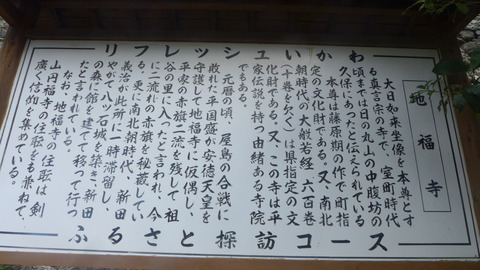 リフレッシュいかわ
地福寺
大日如来坐像を本尊とす
る真言宗の寺で、室町時代
頃までは日の丸山の中腹坊の
久保にあったと伝えられている
本尊は藤原期の作で町指
定の文化財である。又、南北
朝時代の大般若経、六百巻
(二十巻を欠く)は県指定の文
化財である。又、この寺は平
家伝説を持つ由緒ある寺院
でもある。
元暦の頃、屋島の合戦に
敗れた平国盛が安徳天皇を
守護して地福寺に仮偶し、
平家の赤旗二流を残して祖
谷の里に入ったと言われ、今
に二流れの赤旗を秘蔵してい
る。更に南北朝時代、新田
義治が此所に一時滞留し、
やがて八ツ石城を築き、新田
の森に館を建てて移って行っ
たと言われている。
なお、地福寺の住職は剣
山円福寺の住職をも兼ねて、
広く信仰を集めている。
ふるさと探訪コース